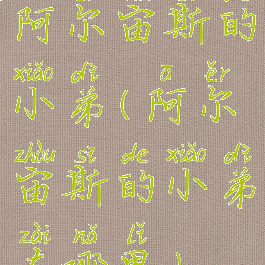 阿尔宙斯的
xiǎo dì ā ěr
小弟(阿尔
zhòu sī de xiǎo dì
宙斯的小弟
zài nǎ lǐ
在哪里)